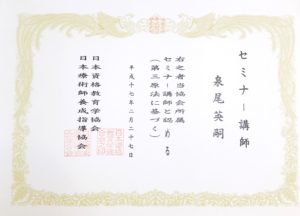 セミナー講師
泉尾英嗣
右之者当協会所属
セミナー講師と認める
(第三原法に基づく)
平成十七年二月二十七日
日本資格教育学協会
日本療術師養成指導協会